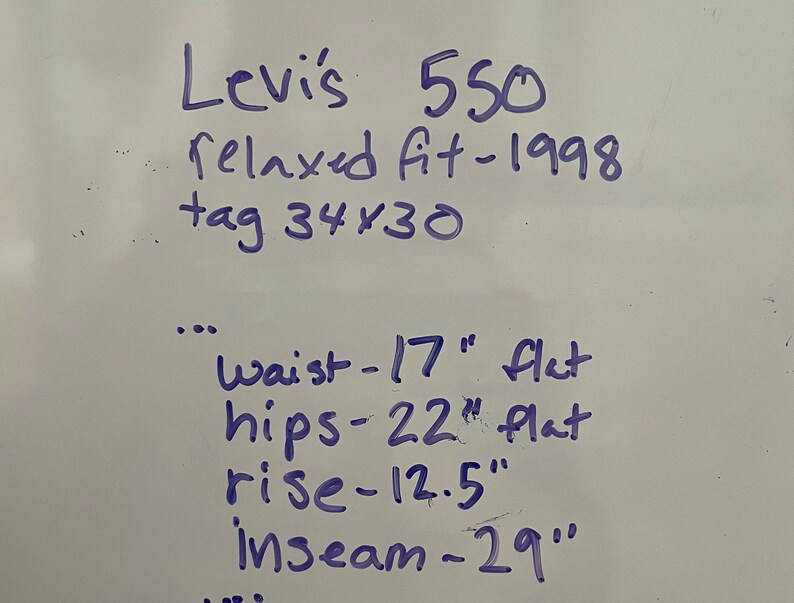 Levi's 550
relaxed fit - 1998
tag 34x30
...
waist - 17" flat
hips - 22" flat
rise - 12.5"
inseam - 29"